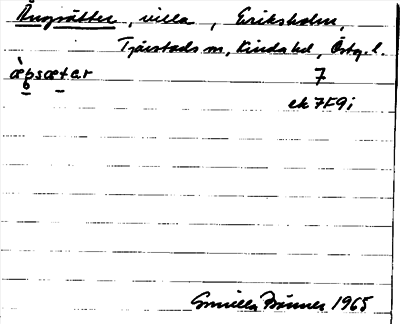 Ängsätter, villa, Eriksholm,
Tjärstads sn, Kinda hd, Östg. l.
æ̀psætar 7
ek 7F9i
Gunilla 1965